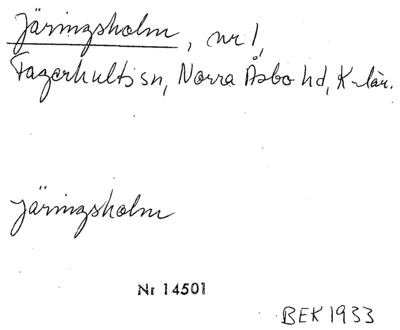 Järingsholm, nr 1,
Fagerhults sn, Norra Åsbo hd, K-län.
järingsholm
Nr 14501
BEK 1933